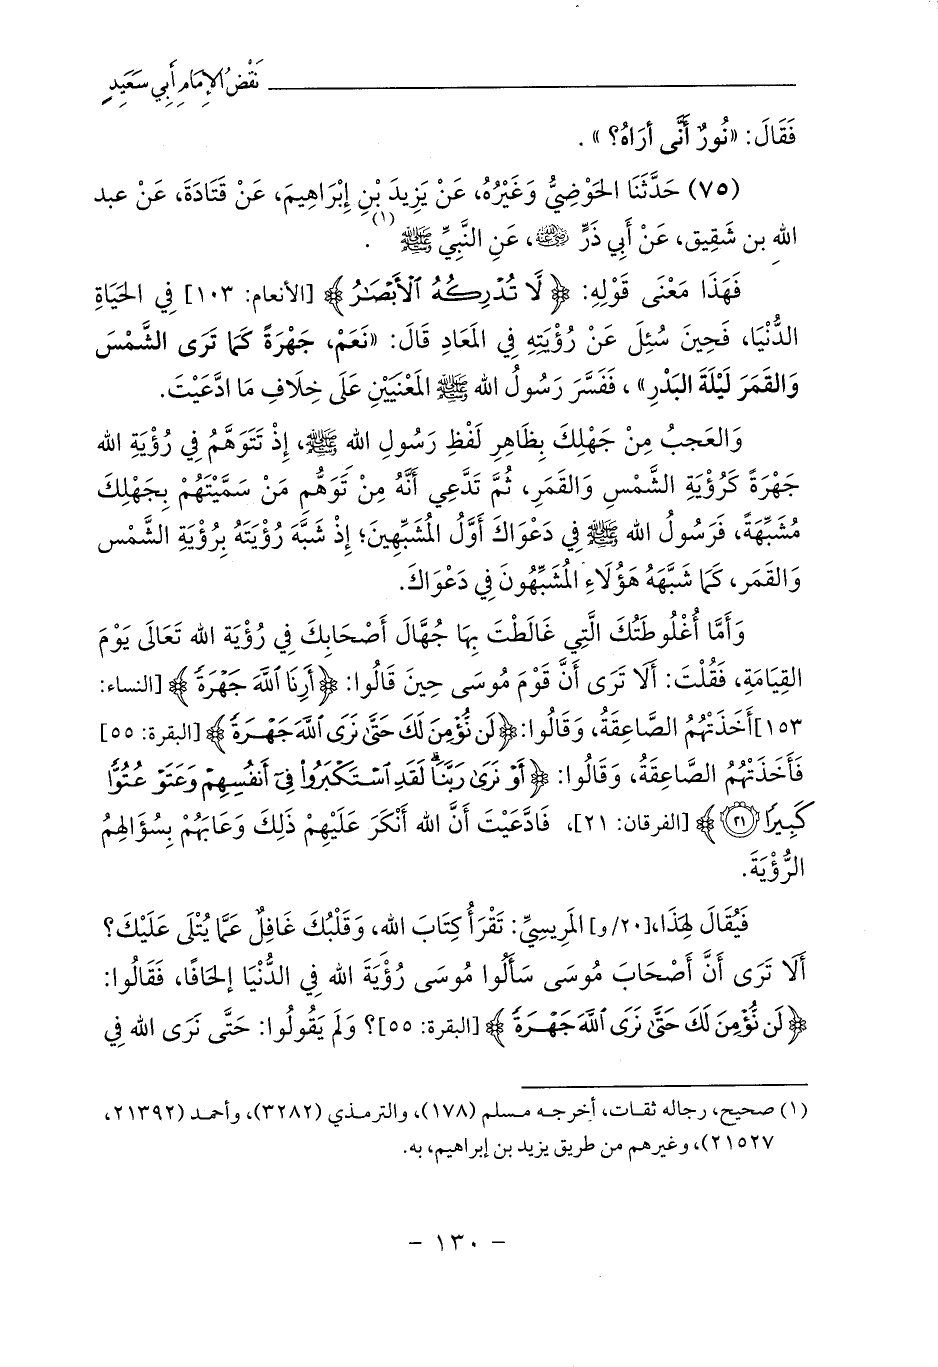 نَقْضُ الإِمَامِ أَبِي سَعِيدٍ
فَقَالَ: «نُورٌ أَنَّى أَرَاهُ؟» .
(٧٥) حَدَّثَنَا الحَوْضِيُّ وَغَيْرُهُ، عَنْ يَزِيدَ بْنِ إِبْرَاهِيمَ، عَنْ قَتَادَةَ، عَنْ عبد
الله بن شَقِيق، عَنْ أَبِي ذَرٍّ رضي الله عنه، عَنِ النَّبِيِّ ﷺ (١).
فَهَذَا مَعْنَى قَوْلِهِ: ﴿لَّا تُدْرِكُهُ ٱلْأَبْصَٰرُ﴾ [الأنعام: ١٠٣] فِي الحَيَاةِ
الدُّنْيَا، فَحِينَ سُئِلَ عَنْ رُؤْيَتِهِ فِي المَعَادِ قَالَ: «نَعَمْ، جَهْرَةً كَمَا تَرَى الشَّمْسَ
وَالقَمَرَ لَيْلَةَ البَدْرِ» ، فَفَسَّرَ رَسُولُ الله ﷺ المَعْنَيَيْنِ عَلَى خِلَافِ مَا ادَّعَيْتَ.
وَالعَجبُ مِنْ جَهْلِكَ بِظَاهِرِ لَفْظِ رَسُولِ الله ﷺ، إِذْ تَتَوَهَّمُ فِي رُؤْيَةِ الله
جَهْرَةً كَرُؤْيَةِ الشَّمْسِ وَالقَمَرِ، ثُمَّ تَدَّعِي أَنَّهُ مِنْ تَوَهُّمِ مَنْ سَمَّيْتَهُمْ بِجَهْلِكَ
مُشَبِّهَةً، فَرَسُولُ الله ﷺ فِي دَعْوَاكَ أَوَّلُ المُشَبِّهِينَ؛ إِذْ شَبَّهَ رُؤْيَتَهُ بِرُؤْيَةِ الشَّمْسِ
وَالقَمَرِ، كَمَا شَبَّهَهُ هَؤُلَاءِ المُشَبِّهُونَ فِي دَعْوَاكَ.
وَأَمَّا أُغْلُوطَتُكَ الَّتِي غَالَطْتَ بِهَا جُهَّالَ أَصْحَابِكَ فِي رُؤْيَة الله تَعَالَى يَوْمَ
القِيَامَةِ، فَقُلْتَ: أَلَا تَرَى أَنَّ قَوْمَ مُوسَى حِينَ قَالُوا: ﴿أَرِنَا ٱللَّهَ جَهْرَةً﴾ [النساء:
١٥٣]أَخَذَتْهُمُ الصَّاعِقَةُ، وَقَالُوا:﴿لَن نُّؤْمِنَ لَكَ حَتَّىٰ نَرَى ٱللَّهَ جَهْرَةً﴾ [البقرة: ٥٥]
فَأَخَذَتْهُمُ الصَّاعِقَةُ، وَقَالُوا: ﴿أَوْ نَرَىٰ رَبَّنَاۗ لَقَدِ ٱسْتَكْبَرُوا۟ فِىٓ أَنفُسِهِمْ وَعَتَوْ عُتُوًّا
كَبِيرًا ٢١﴾ [الفرقان: ٢١]، فَادَّعَيْتَ أَنَّ الله أَنْكَرَ عَلَيْهِمْ ذَلِكَ وَعَابَهُمْ بِسُؤَالِهِمُ
الرُّؤْيَةَ.
فَيُقَالَ لِهَذَا،[٢٠/و] المَرِيسِيِّ: تَقْرَأُ كِتَابَ الله، وَقَلْبُكَ غَافِلٌ عَمَّا يُتْلَى عَلَيْكَ؟
أَلَا تَرَى أَنَّ أَصْحَابَ مُوسَى سَأَلُوا مُوسَى رُؤْيَةَ الله فِي الدُّنْيَا إِلحَافًا، فَقَالُوا:
﴿لَن نُّؤْمِنَ لَكَ حَتَّىٰ نَرَى ٱللَّهَ جَهْرَةً﴾ [البقرة: ٥٥]؟ وَلَم يَقُولُوا: حَتَّى نَرَى الله فِي
(١) صحيح، رجاله ثقات، أخرجه مسلم (١٧٨)، والترمذي (٣٢٨٢)، وأحمد (٢١٣٩٢،
٢١٥٢٧)، وغيرهم من طريق يزيد بن إبراهيم، به.
- ١٣٠ -